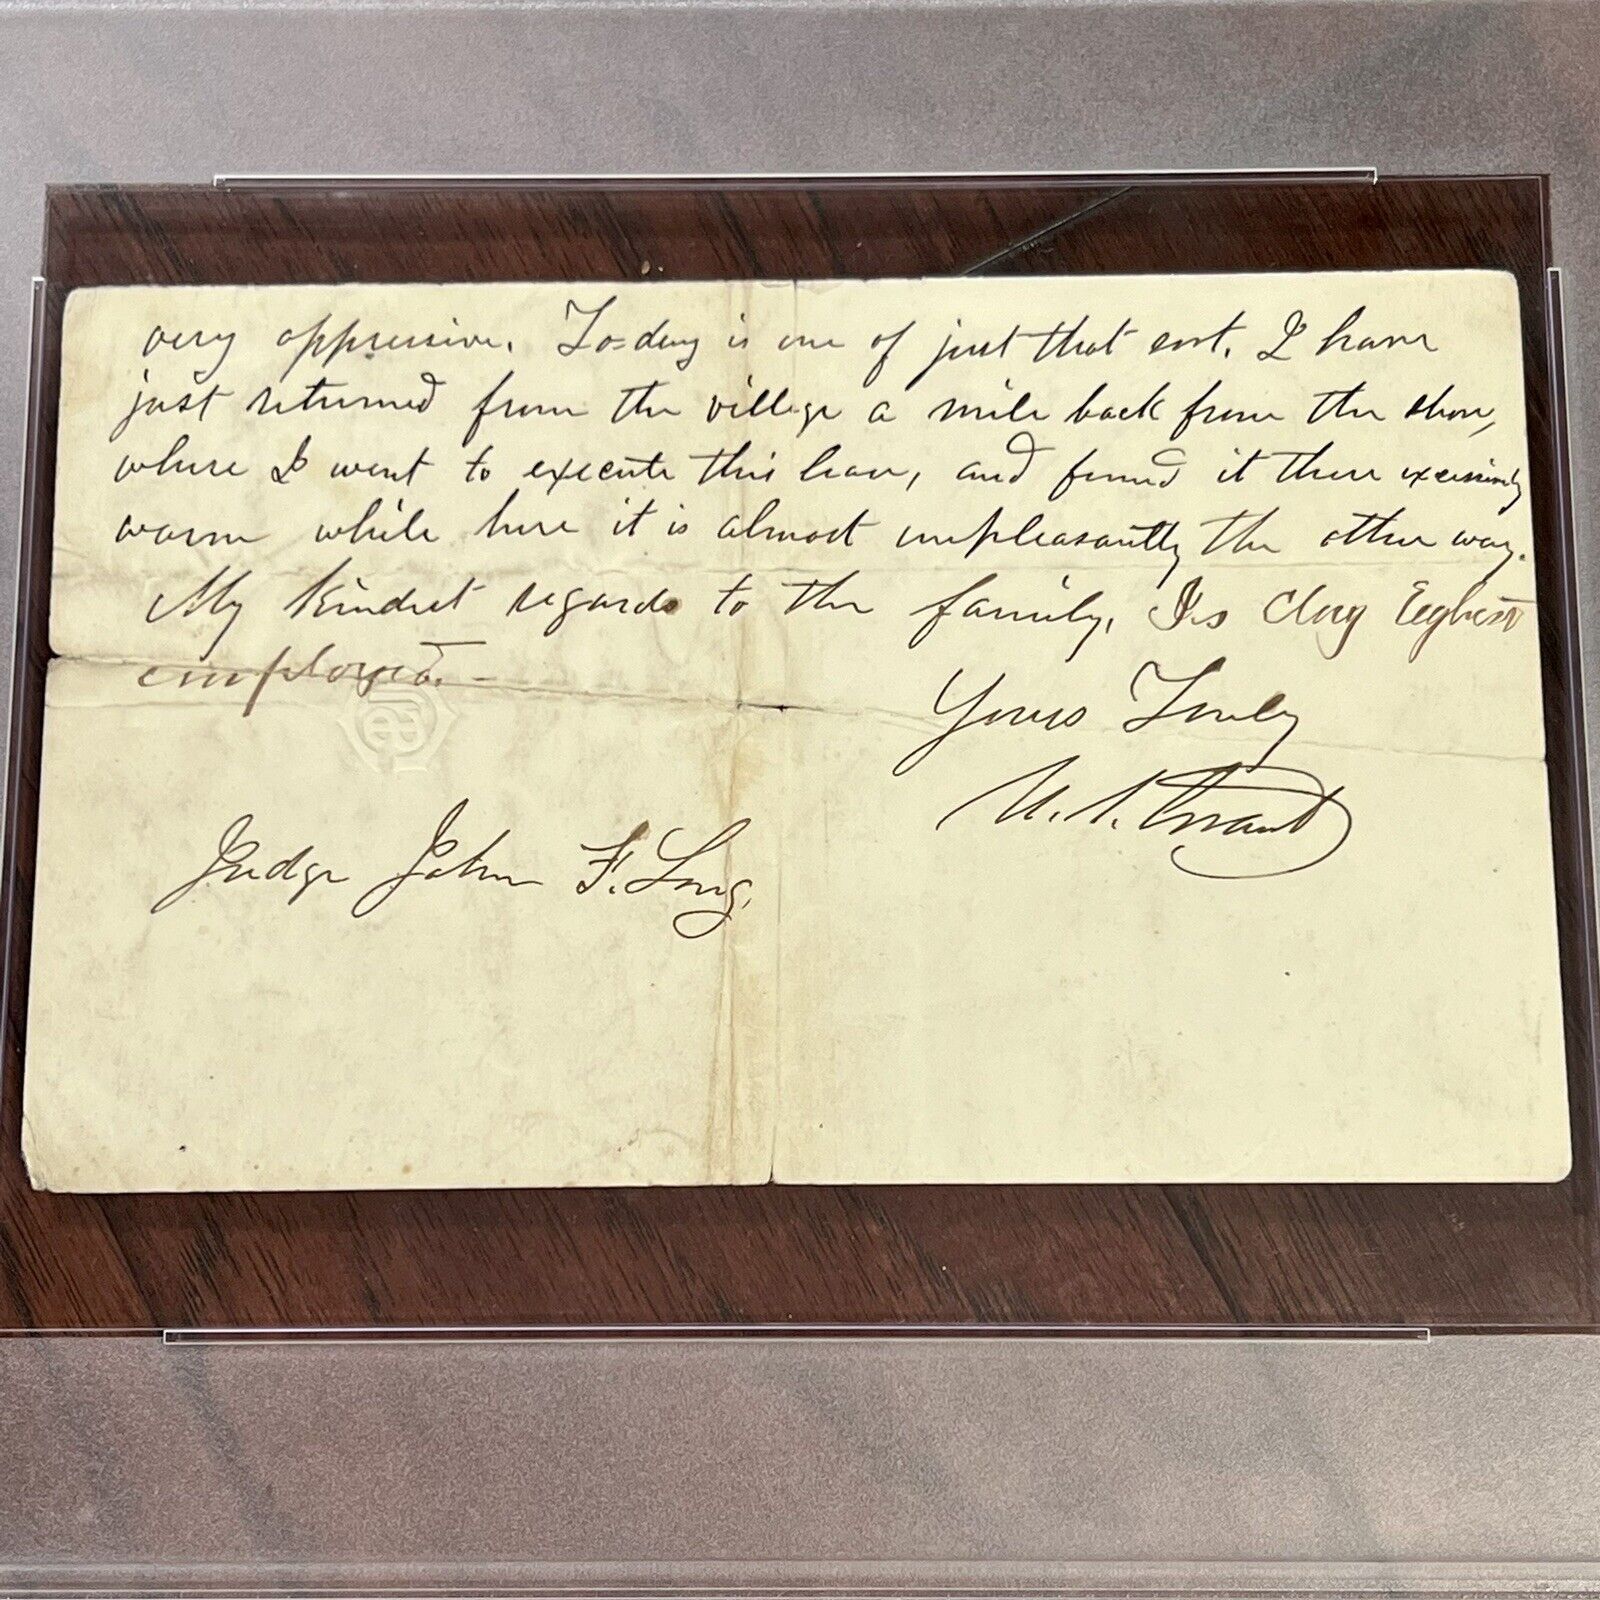 very oppressive. To=day is one of just that sort. I have
just returned from the village a mile back from the shore,
where I went to execute this lease, and found it there excessively
warm while here it is almost unpleasantly the other way.
My kindest regards to the family. Is Clay
employed.
Yours Truly
U. S. Grant
Judge John F. Long.